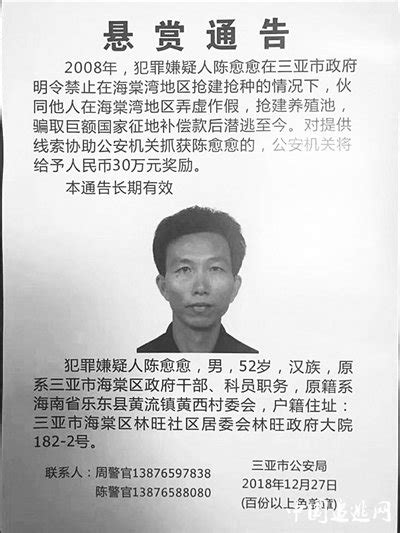 悬赏通告
2008年，犯罪嫌疑人陈愈愈在三亚市政府
明令禁止在海棠湾地区抢建抢种的情况下，伙
同他人在海棠湾地区弄虚作假，抢建养殖池，
骗取巨额国家征地补偿款后潜逃至今。对提供
线索协助公安机关抓获陈愈愈的，公安机关将
给予人民币30万元奖励。
本通告长期有效
犯罪嫌疑人陈愈愈，男，52岁，汉族，原
系三亚市海棠区政府干部、科员职务，原籍系
海南省乐东县黄流镇黄西村委会，户籍住址：
三亚市海棠区林旺社区居委会林旺政府大院
182-2号。
联系人：周警官13876597838
陈警官13876588080
三亚市公安局
2018年12月27日
(百份以上免
中国追逃网